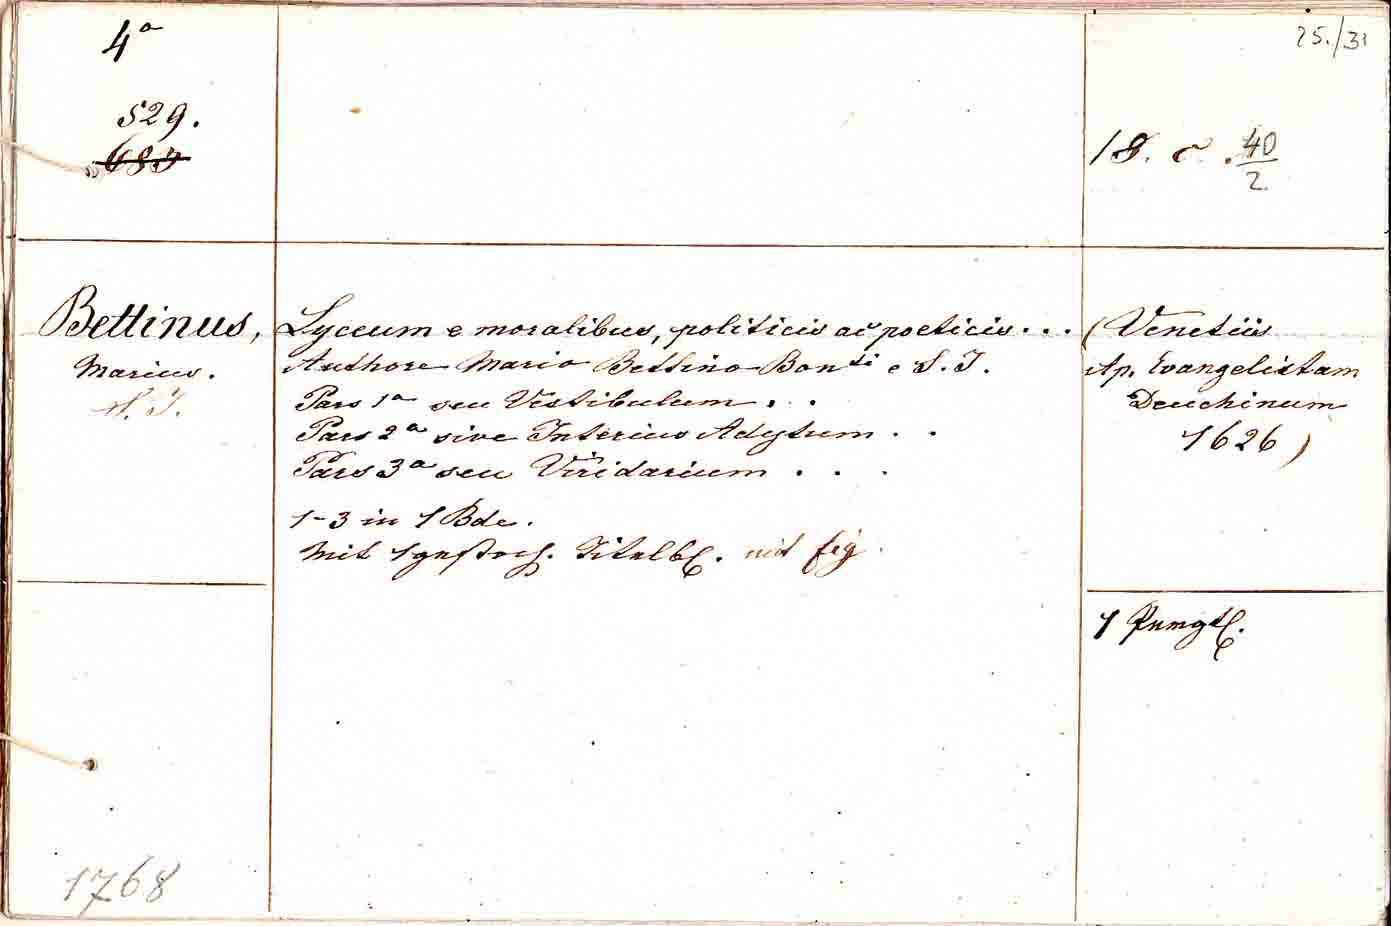 4º
25./31
529.
683
18. c. 40
2.
Bettinus,
Marius.
S. J.
Lyceum e moralibus, politicis ac poeticis...
Authore Mario Bettino Bonti e S. J.
Pars 1a seu Vestibulum...
Pars 2a sive Interius Adytum..
Pars 3a seu Viridarium...
1-3 in 1 Bde.
Mit 1 gestoch. Titelbl. mit fig.
(Venetiis
Ap. Evangelistam
Deuchinum
1626)
1 Prmgtl.
1768